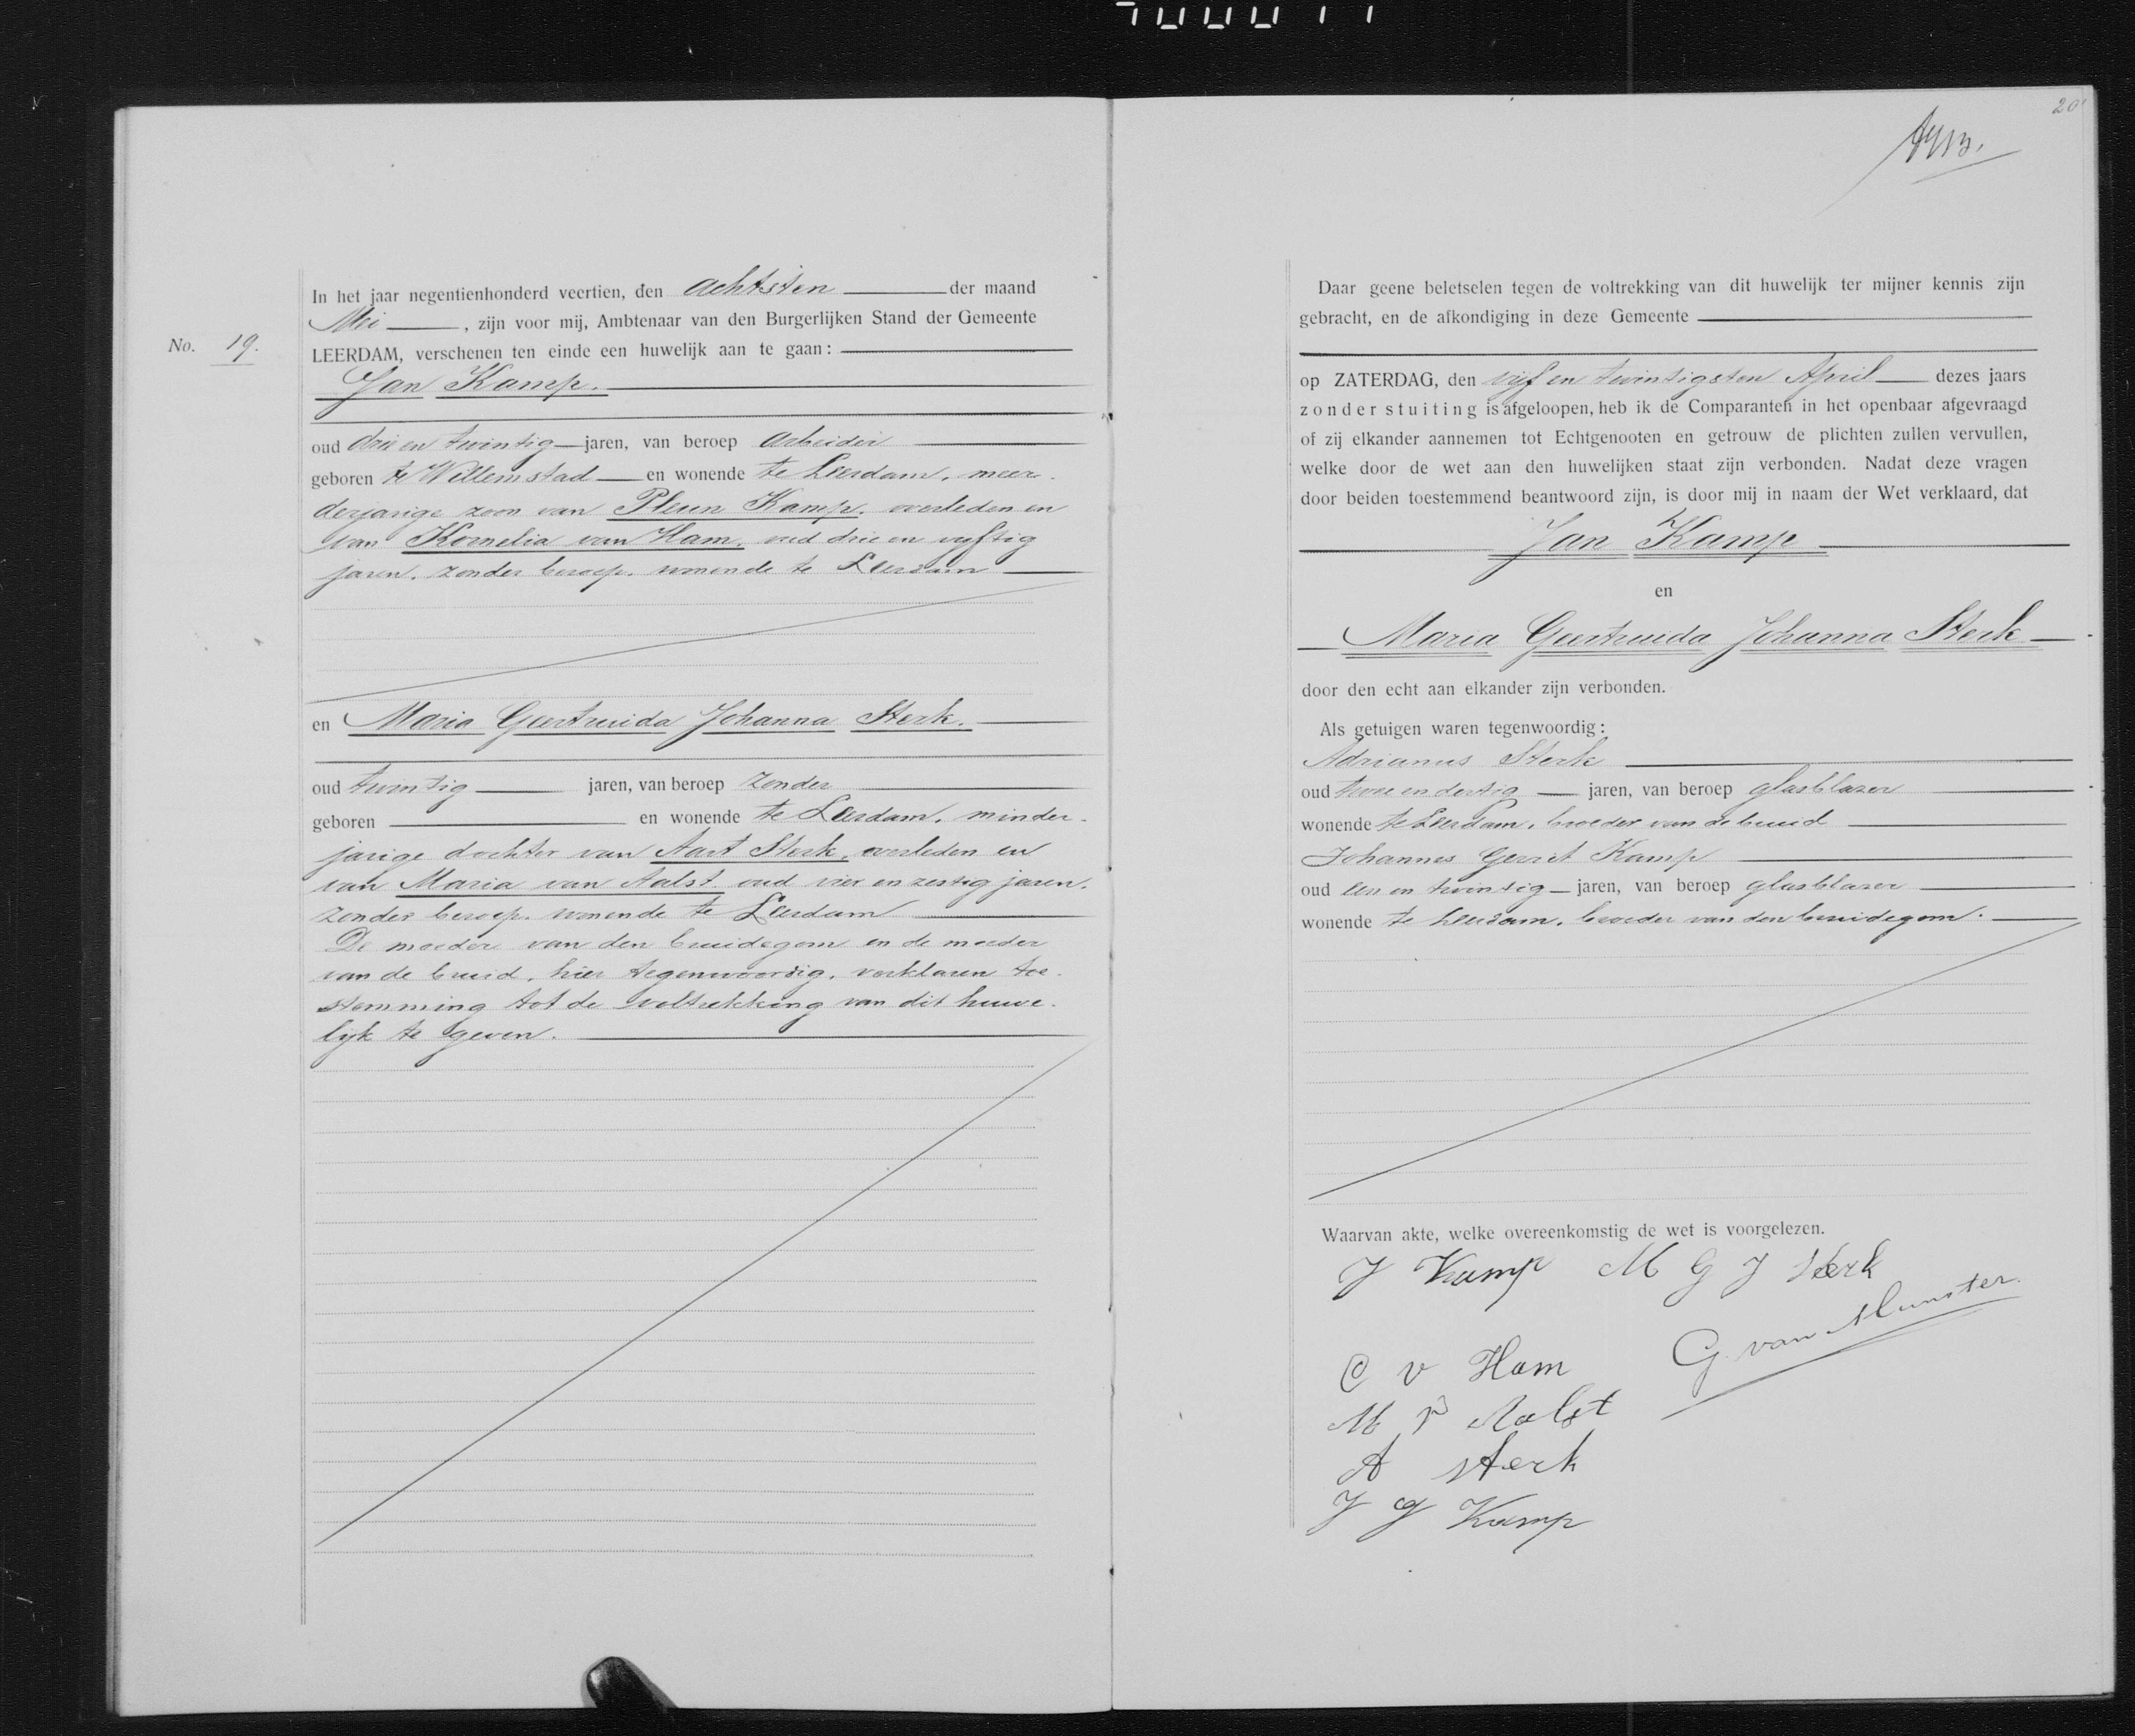 No. 19.
In het jaar negentienhonderd veertien, den achtsten der maand
Mei, zijn voor mij, Ambtenaar van den Burgerlijken Stand der Gemeente
LEERDAM, verschenen ten einde een huwelijk aan te gaan:
Jan Kamp.
oud drie en twintig jaren, van beroep arbeider
geboren te Willemstad en wonende te Leerdam, meer-
derjarige zoon van Pleun Kamp, overleden en
van Kornelia van Ham, oud drie en vijftig
jaren, zonder beroep, wonende te Leerdam
en Maria Geertruida Johanna Sterk.
oud twintig jaren, van beroep zonder
geboren en wonende te Leerdam, minder-
jarige dochter van Aart Sterk, overleden en
van Maria van Aalst oud vier en zestig jaren.
zonder beroep, wonende te Leerdam
De moeder van den bruidegom en de moeder
van de bruid, hier tegenwoordig, verklaren toe-
stemming tot de voltrekking van dit huwe-
lijk te geven.
20
Daar geene beletselen tegen de voltrekking van dit huwelijk ter mijner kennis zijn
gebracht, en de afkondiging in deze Gemeente
op ZATERDAG, den vijf en twintigsten April dezes jaars
zonder stuiting is afgeloopen, heb ik de Comparanten in het openbaar afgevraagd
of zij elkander aannemen tot Echtgenooten en getrouw de plichten zullen vervullen,
welke door de wet aan den huwelijken staat zijn verbonden. Nadat deze vragen
door beiden toestemmend beantwoord zijn, is door mij in naam der Wet verklaard, dat
Jan Kamp
en
Maria Geertruida Johanna Sterk
door den echt aan elkander zijn verbonden.
Als getuigen waren tegenwoordig:
Adrianus Sterk
oud twee en dertig jaren, van beroep glasblazer
wonende te Leerdam, broeder van de bruid
Johannes Gerrit Kamp
oud een en twintig jaren, van beroep glasblazer
wonende te Leerdam, broeder van den bruidegom.
Waarvan akte, welke overeenkomstig de wet is voorgelezen.
J Kamp M G J Sterk
G. van Munster
C v Ham
M v Aalst
A Sterk
J G Kamp